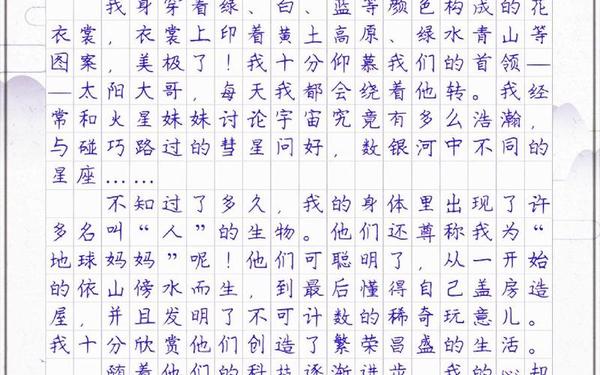 我身穿着绿、白、蓝等颜色构成的花
衣裳，衣裳上印着黄土高原、绿水青山等
图案，美极了！我十分仰慕我们的首领—
—太阳大哥，每天我都会绕着他转。我经
常和火星妹妹讨论宇宙究竟有多么浩瀚，
与碰巧路过的彗星问好，数银河中不同的
星座……
不知过了多久，我的身体里出现了许
多名叫“人”的生物。他们还尊称我为“
地球妈妈”呢！他们可聪明了，从一开始
的依山傍水而生，到最后懂得自己盖房造
屋，并且发明了不可计数的稀奇玩意儿。
我十分欣赏他们创造了繁荣昌盛的生活。
随着他们的科技逐渐进步，我的心却